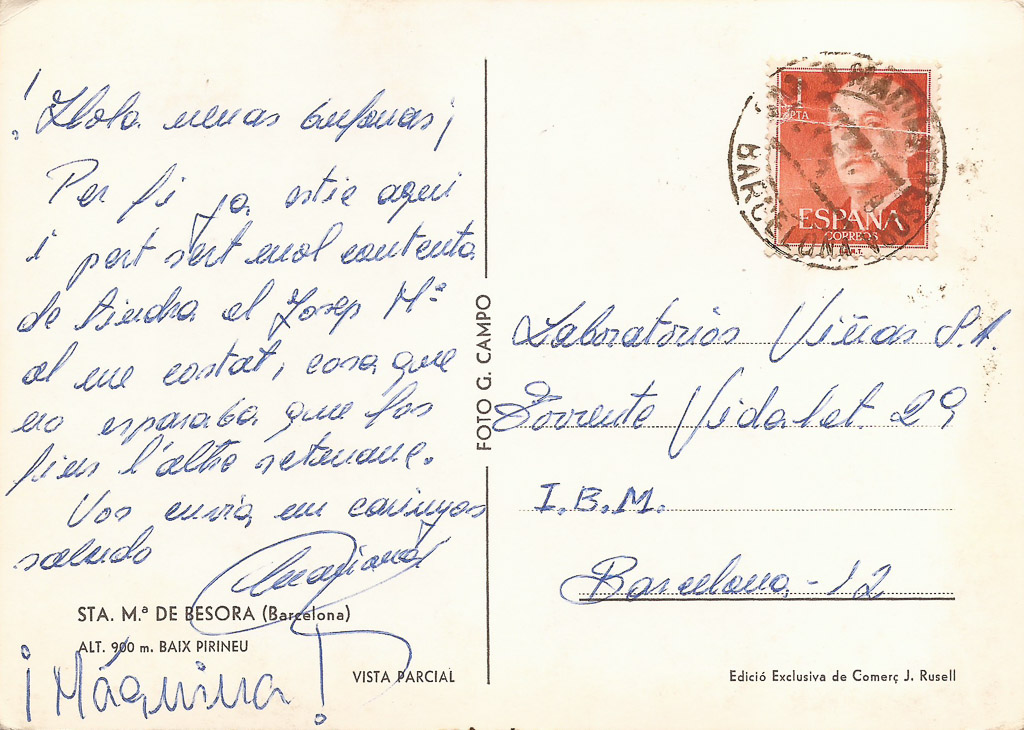 ¡Hola nenas guapas¡
Per fi ja estic aquí
i pert sert mol contenta
de tindra el Josep Mª
al me costat, cosa que
no esparaba que fos
fins l'altre setmane.
Vos envia un carinyos
saludo
Mariona
STA. M.ª DE BESORA (Barcelona)
ALT. 900 m. BAIX PIRINEU
VISTA PARCIAL
¡Máquina!
FOTO G. CAMPO
1
PTA
ESPAÑA
CORREOS
F.N.M.T.
BARCELONA
Laboratorios Viñas S.A.
Torrente Vidalet 29
I.B.M.
Barcelona - 12
Edició Exclusiva de Comerç J. Rusell